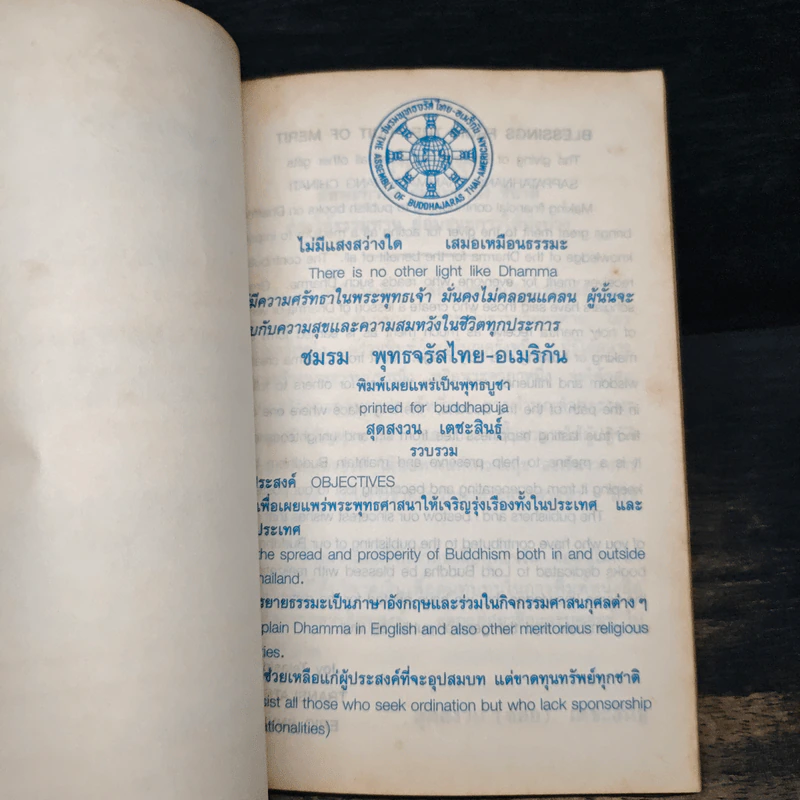 ชมรมพุทธจรัส ไทย-อเมริกัน
THE ASSEMBLY OF BUDDHAJARAS THAI-AMERICAN
ไม่มีแสงสว่างใด เสมอเหมือนธรรมะ
There is no other light like Dhamma
มีความศรัทธาในพระพุทธเจ้า มั่นคงไม่คลอนแคลน ผู้นั้นจะ
บกับความสุขและความสมหวังในชีวิตทุกประการ
ชมรม พุทธจรัสไทย-อเมริกัน
พิมพ์เผยแพร่เป็นพุทธบูชา
printed for buddhapuja
สุดสงวน เตชะสินธุ์
รวบรวม
ประสงค์ OBJECTIVES
เพื่อเผยแพร่พระพุทธศาสนาให้เจริญรุ่งเรืองทั้งในประเทศ และ
ประเทศ
the spread and prosperity of Buddhism both in and outside
hailand.
รยายธรรมะเป็นภาษาอังกฤษและร่วมในกิจกรรมศาสนกุศลต่าง ๆ
plain Dhamma in English and also other meritorious religious
ties.
ช่วยเหลือแก่ผู้ประสงค์ที่จะอุปสมบท แต่ขาดทุนทรัพย์ทุกชาติ
sist all those who seek ordination but who lack sponsorship
ationalities)